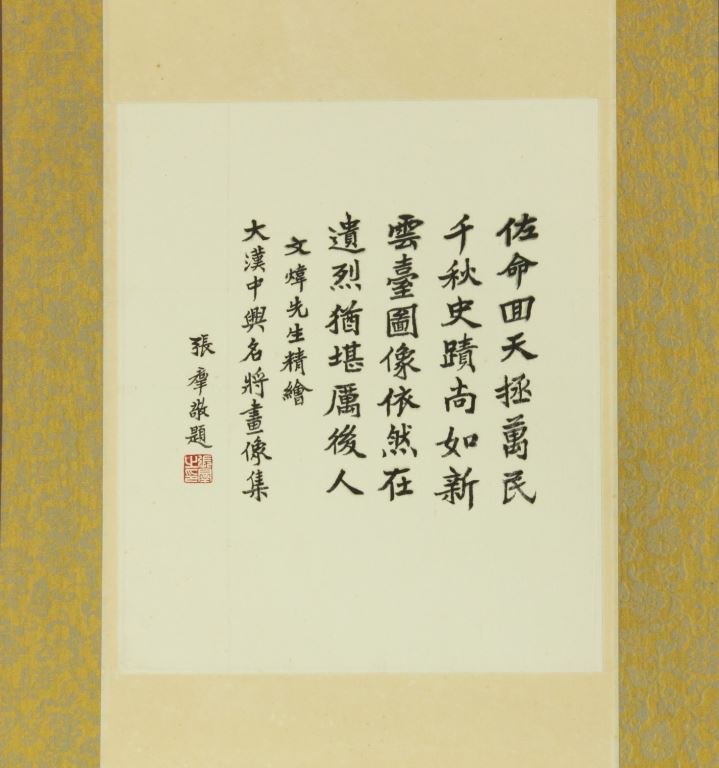 佐命回天拯萬民
千秋史蹟尚如新
雲臺圖像依然在
遺烈猶堪厲後人
文煒先生精繪
大漢中興名將畫像集
張羣敬題
張羣之印